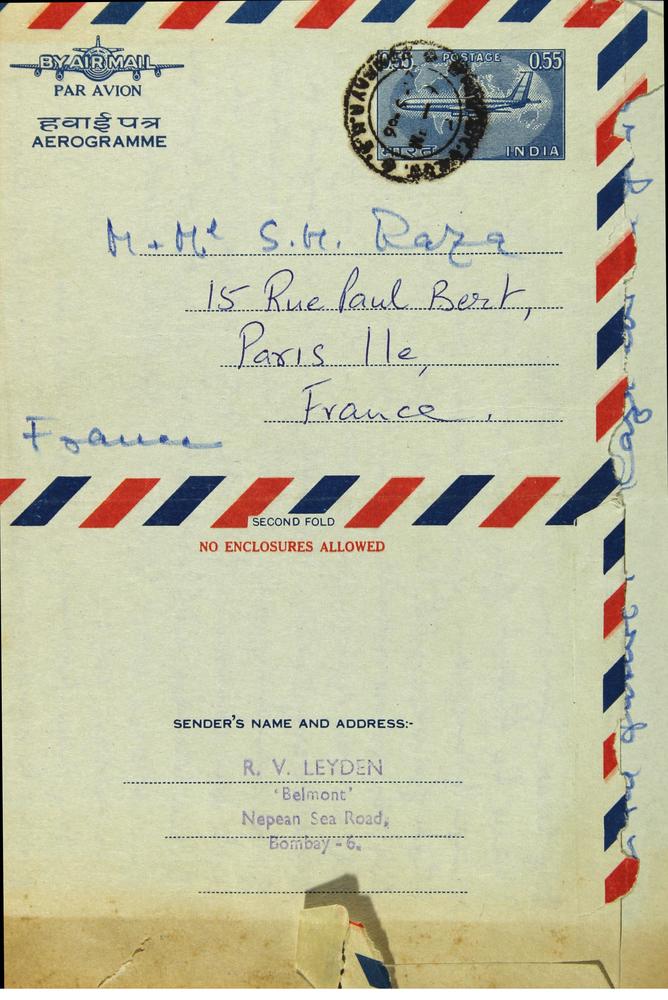 BY AIR MAIL
PAR AVION
हवाई पत्र
AEROGRAMME
0.55 POSTAGE 0.55
भारत INDIA
M. + Me S.H. Raza
15 Rue Paul Bert,
Paris 11e,
France.
France
SECOND FOLD
NO ENCLOSURES ALLOWED
SENDER'S NAME AND ADDRESS:-
R. V. LEYDEN
'Belmont'
Nepean Sea Road,
Bombay - 6.